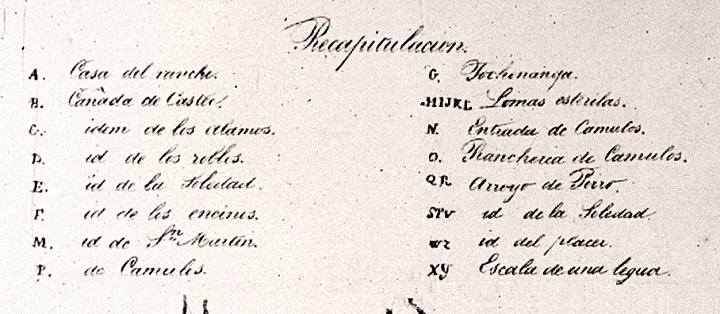 Recapitulacion.
A. Casa del rancho.
B. Cañada de Castec.
C. idem de los alamos.
D. id de los robles.
E. id de la Soledad.
F. id de los encinos.
M. id de Sn Martin.
P. de Camulos.
G. Tochonanga.
HIJKL Lomas esteriles.
N. Entrada de Camulos.
O. Rancheria de Camulos.
QR Arroyo de Perro.
STV id de la Soledad
WZ id del placer.
XY Escala de una legua.